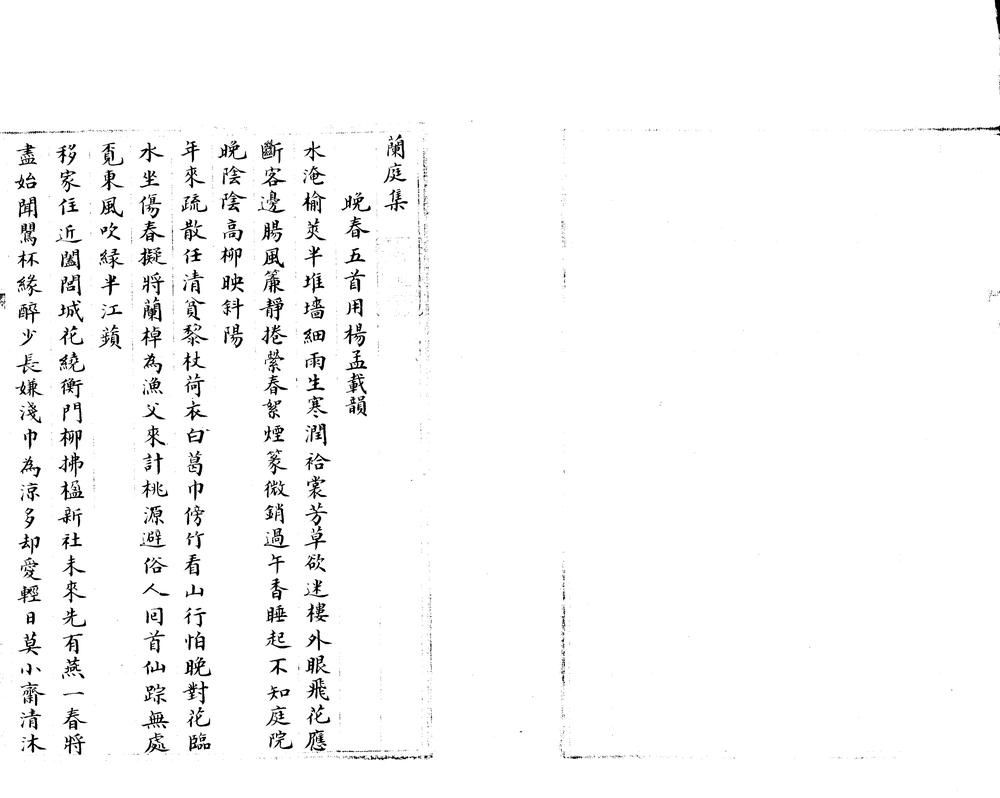 蘭庭集
晚春五首用楊孟載韻
水淹榆莢半堆墻細雨生寒潤袷裳芳草欲迷樓外眼飛花應
斷客邊腸風簾靜捲縈春絮煙篆微銷過午香睡起不知庭院
晚陰陰高柳映斜陽
年來疏散任清貧藜杖荷衣白葛巾傍竹看山行怕晚對花臨
水坐傷春擬將蘭棹為漁父來計桃源避俗人回首仙踪無處
覔東風吹緑半江蘋
移家住近闔閭城花繞衡門柳拂楹新社未來先有燕一春將
盡始聞鸎杯緣醉少長嫌淺巾為涼多却愛輕日莫小齋清沐